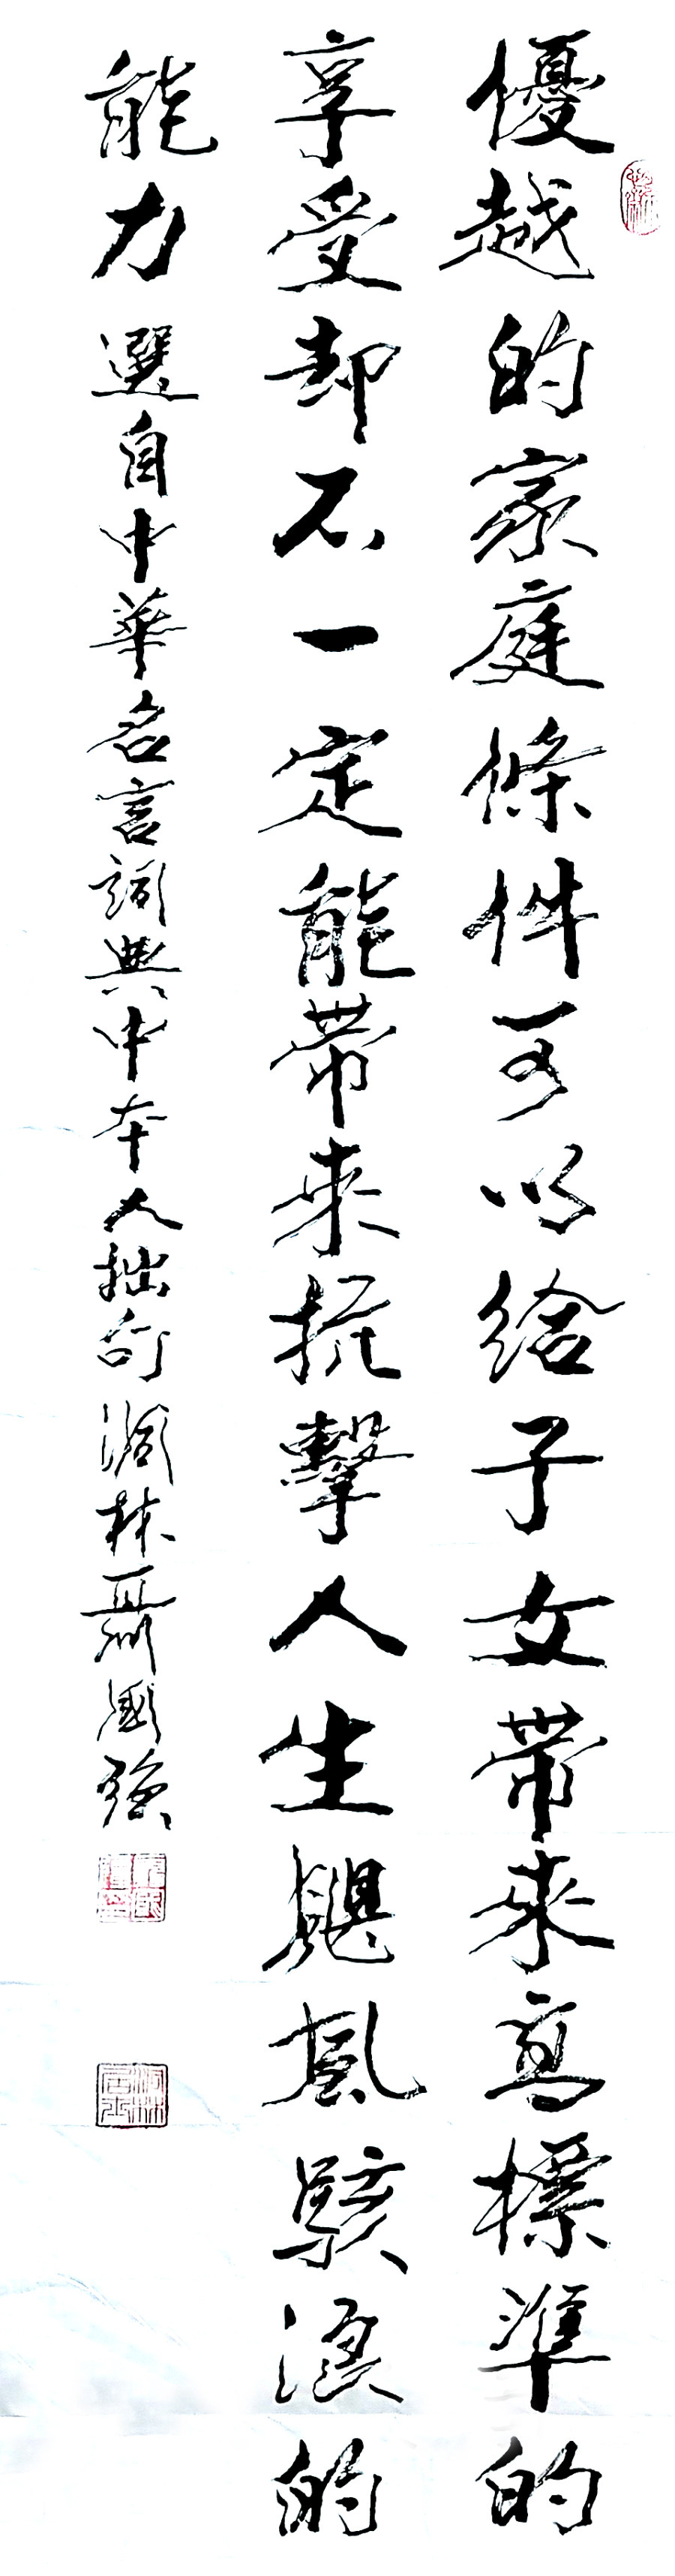 優越的家庭條件可以給子女帶來高標準的
享受却不一定能帶來抗擊人生颶風駭浪的
能力 選自中華名言詞典中本人拙句 澗林聶國強